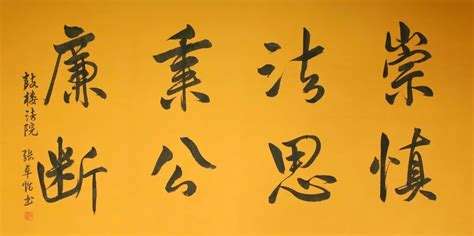 崇法秉廉
慎思公断
鼓楼法院 张卓书